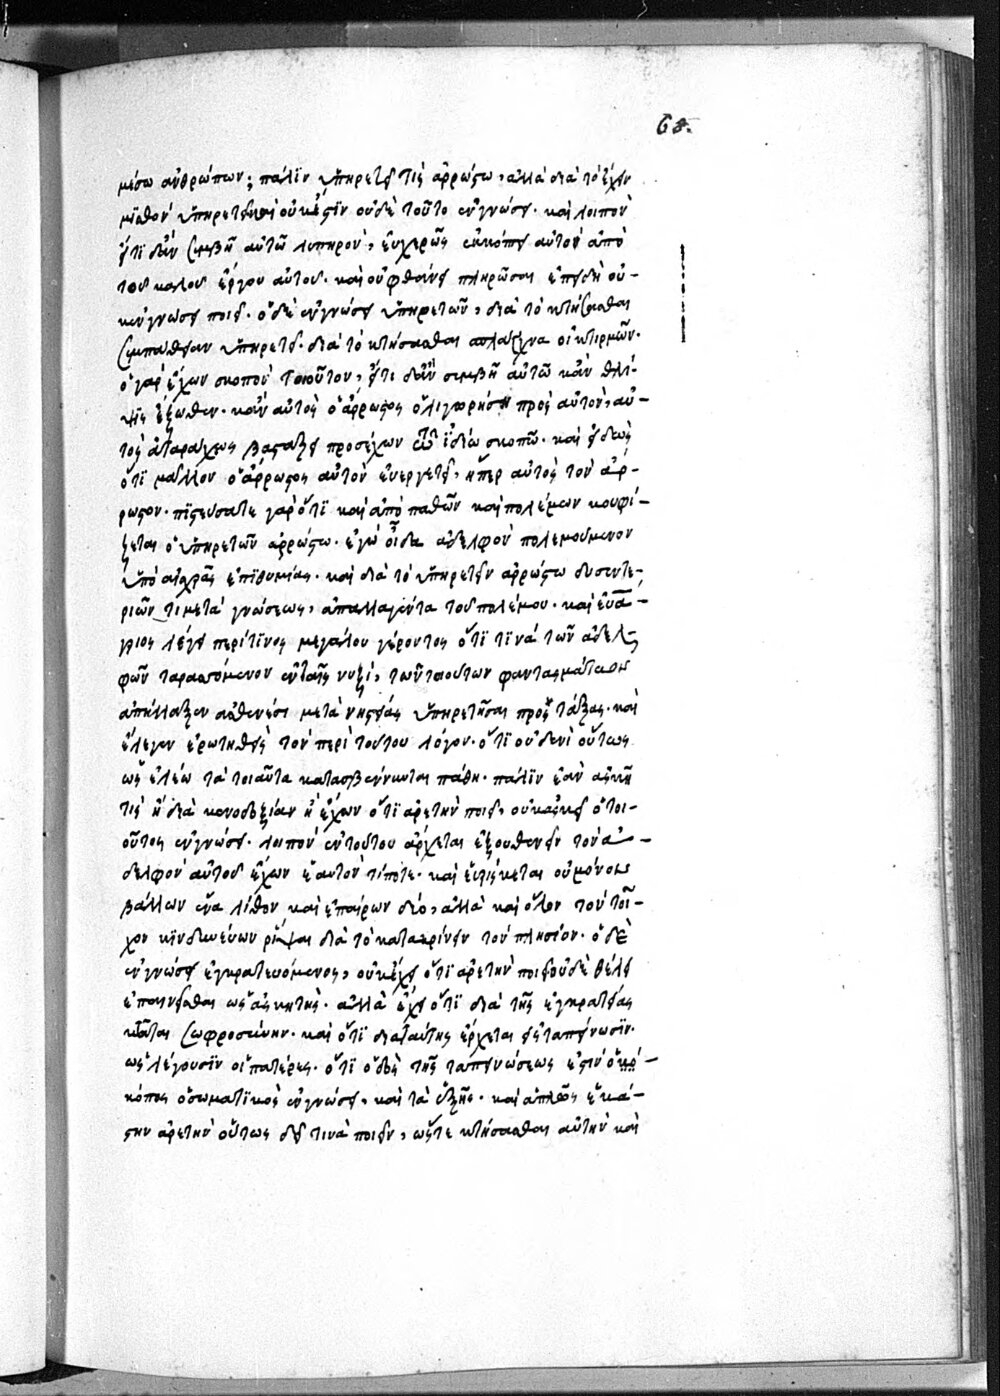 68.
μέσω ἀνθρώπων; πάλϊν ὑπηρετεῖ τὶς ἀρρώστω, ἀλλὰ διὰ τὸ ἔχειν
μϊσθὸν ὑπηρετεῖ καὶ οὐκ ἔστϊν οὐδὲ τοῦτο ἐν γνώσει. καὶ λοιπὸν
ὅτι δ' ἂν συμβῆ αὐτῶ λυπηρὸν, εὐχερῶς ἐκκόπτει αὐτὸν ἀπὸ
τοῦ καλοῦ ἔργου αὐτοῦ. καὶ οὐ φθάνει πληρῶσαι ἐπειδὴ οὐ-
κ ἐν γνώσει ποιεῖ. ὁ δὲ ἐν γνώσει ὑπηρετῶν, διὰ τὸ κτήσασθαι
συμπάθειαν ὑπηρετεῖ. διὰ τὸ κτήσασθαι σπλάγχνα οἰκτιρμῶν.
ὁ γὰρ ἔχων σκοπὸν τοιοῦτον, ὅτι δἂν συμβῆ αὐτῶ κἂν θλί-
ψις ἔξωθεν. κἂν αὐτὸς ὁ ἄρρωστος ὀλιγωρήση πρὸς αὐτὸν, αὐ-
τὸς ἀταράχως βαστάζει προσέχων τῶ ἰδίω σκοπῶ. καὶ εἰδὼς
ὅτϊ μᾶλλον ὁ ἄρρωστος αὐτὸν εὐεργετεῖ, ἤπερ αὐτὸς τὸν ἄρ-
ρωστον. πϊστεύσατε γὰρ ὅτϊ καὶ ἀπὸ παθῶν καὶ πολέμων κουφί-
ζεται ὁ ὑπηρετῶν ἀρρώστω. ἐγὼ οἶδα ἀδελφὸν πολεμούμενον
ὑπὸ αἰσχρᾶς ἐπϊθυμίας. καὶ διὰ τὸ ὑπηρετεῖν ἀρρώστω δυσεντε-
ριῶντι μετὰ γνώσεως, ἀπαλλαγέντα τοῦ πολέμου. καὶ εὐά-
γριος λέγει περί τϊνος μεγάλου γέροντος ὅτϊ τϊνὰ τῶν ἀδελ-
φῶν ταρασσόμενον ἐν ταῖς νυξὶ, τῶν τοιούτων φαντασμάτων
ἀπήλλαξεν ἀσθενέσι μετὰ νηστείας ὑπηρετῆσαι προστάξας. καὶ
ἔλεγεν ἐρωτηθεὶς τὸν περὶ τούτου λόγον. ὅτϊ οὐδενὶ οὕτως
ὡς ἐλέω τὰ τοιαῦτα κατασβέννυται πάθη. πάλϊν ἐὰν ἀσκῆ
τὶς ἢ διὰ κενοδοξίαν ἢ ἔχων ὅτϊ ἀρετὴν ποιεῖ, οὐκ ἀσκεῖ ὁ τοι-
οῦτος ἐν γνώσει. λοιπὸν ἐν τούτου ἄρχεται ἐξουθενεῖν τὸν ἀ-
δελφὸν αὐτοῦ ἔχων ἑαυτὸν τίποτε. καὶ εὑρίσκεται οὐ μόνον
βάλλων ἕνα λίθον καὶ ἐπαίρων δύο, ἀλλὰ καὶ ὅλον τὸν τοῖ-
χον κϊνδυνεύων ῥίψαι διὰ τὸ κατακρίνειν τὸν πλησίον. ὁ δὲ
ἐν γνώσει ἐγκρατευόμενος, οὐκ ἔχει ὅτϊ ἀρετὴν ποιεῖ οὐδὲ θέλει
ἐπαινεῖσθαι ὡς ἀσκητὴς. ἀλλὰ ἔχει ὅτϊ διὰ τῆς ἐγκρατείας
κτᾶται σωφροσύνην. καὶ ὅτϊ διὰ ταύτης ἔρχεται εἰς ταπείνωσϊν.
ὡς λέγουσϊν οἱ πατέρες. ὅτϊ ὁδὸς τῆς ταπεινώσεως ἐστὶν οἱ
κόποι οἱ σωματϊκοὶ ἐν γνώσει, καὶ τὰ ἑξῆς. καὶ ἁπλῶς ἑκά-
στην ἀρετὴν οὕτως δεῖ τινὰ ποιεῖν, ὥστε κτήσασθαι αὐτὴν καὶ